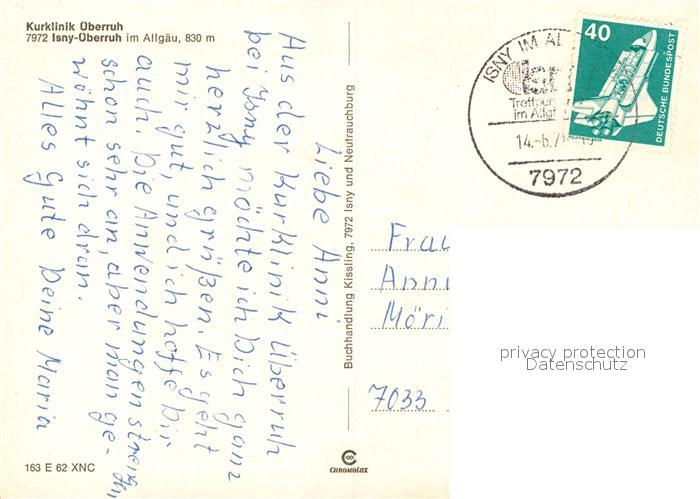 Kurklinik Überruh
7972 Isny-Überruh im Allgäu, 830 m
Liebe Anni
Aus der Kurklinik Überruh
bei Isny möchte ich Dich ganz
herzlich grüßen. Es geht
mir gut, und ich hoffe Dir
auch. Die Anwendungen streng
schon sehr an, aber man ge-
wöhnt sich dran.
Alles Gute Deine Maria
163 E 62 XNC
Buchhandlung Kissling, 7972 Isny und Neutrauchburg
CHROMOLUX
ISNY IM AL
Treffpun
im Allg
14.-6.7
7972
40
DEUTSCHE BUNDESPOST
Frau
Anni
Möri
7033
privacy protection
Datenschutz